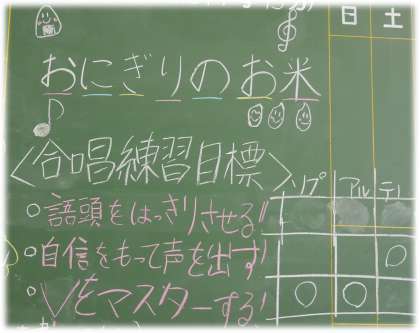 日 土
おにぎりのお米
<合唱練習目標>
ソプ アル テノ
○語頭をはっきりさせる!!
○自信をもって声を出す!
○Vをマスターする!